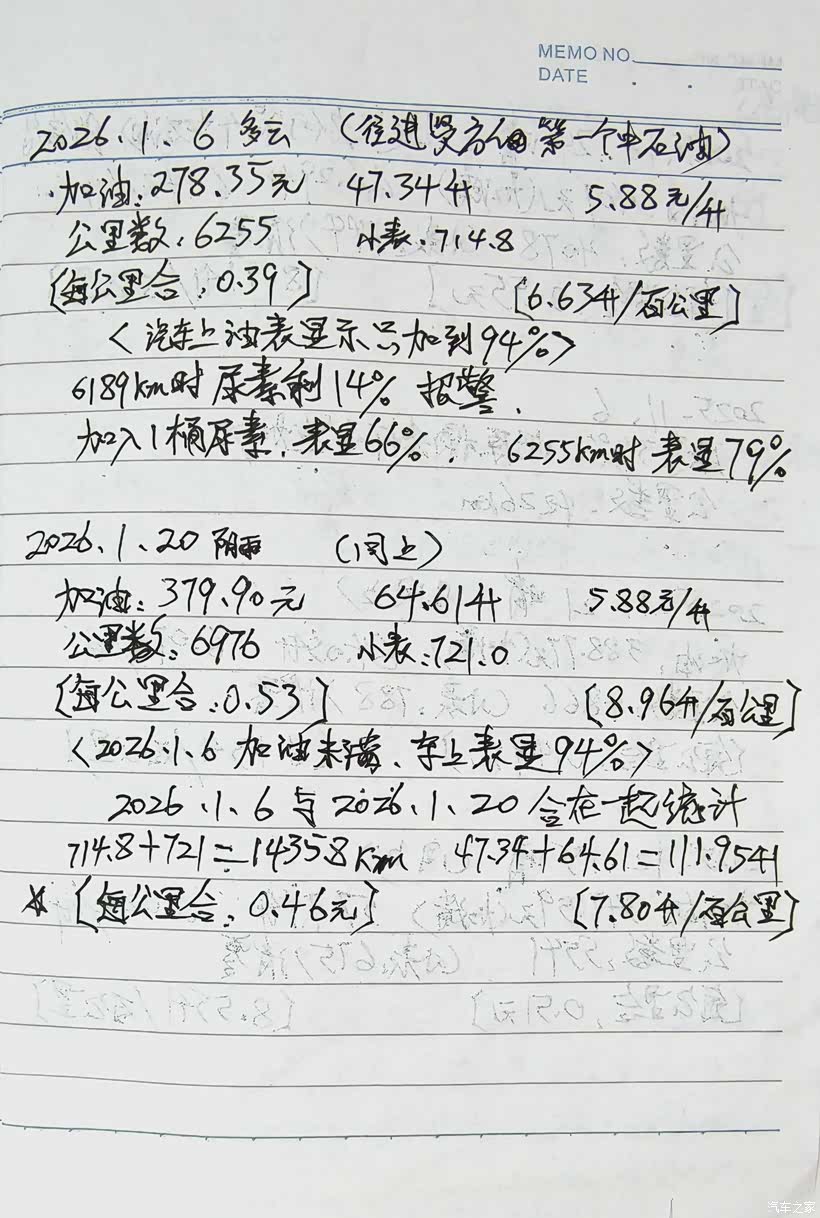 MEMO NO.
DATE . .
2026.1.6 多云 (往进贤方向第一个中石油)
加油:278.35元 47.34升 5.88元/升
公里数:6255 小表:714.8
[每公里合:0.39] [6.63升/百公里]
<汽车上油表显示只加到94%>
6189km时尿素剩14% 报警.
加入1桶尿素.表显66%. 6255km时表显79%
2026.1.20 阴雨 (同上)
加油:379.90元 64.61升 5.88元/升
公里数:6976 小表:721.0
[每公里合:0.53] [8.96升/百公里]
<2026.1.6加油未满、车上表显94%>
2026.1.6与2026.1.20合在一起统计
714.8+721=1435.8Km 47.34+64.61=111.95升
☆ [每公里合:0.46元] [7.80升/百公里]
汽车之家